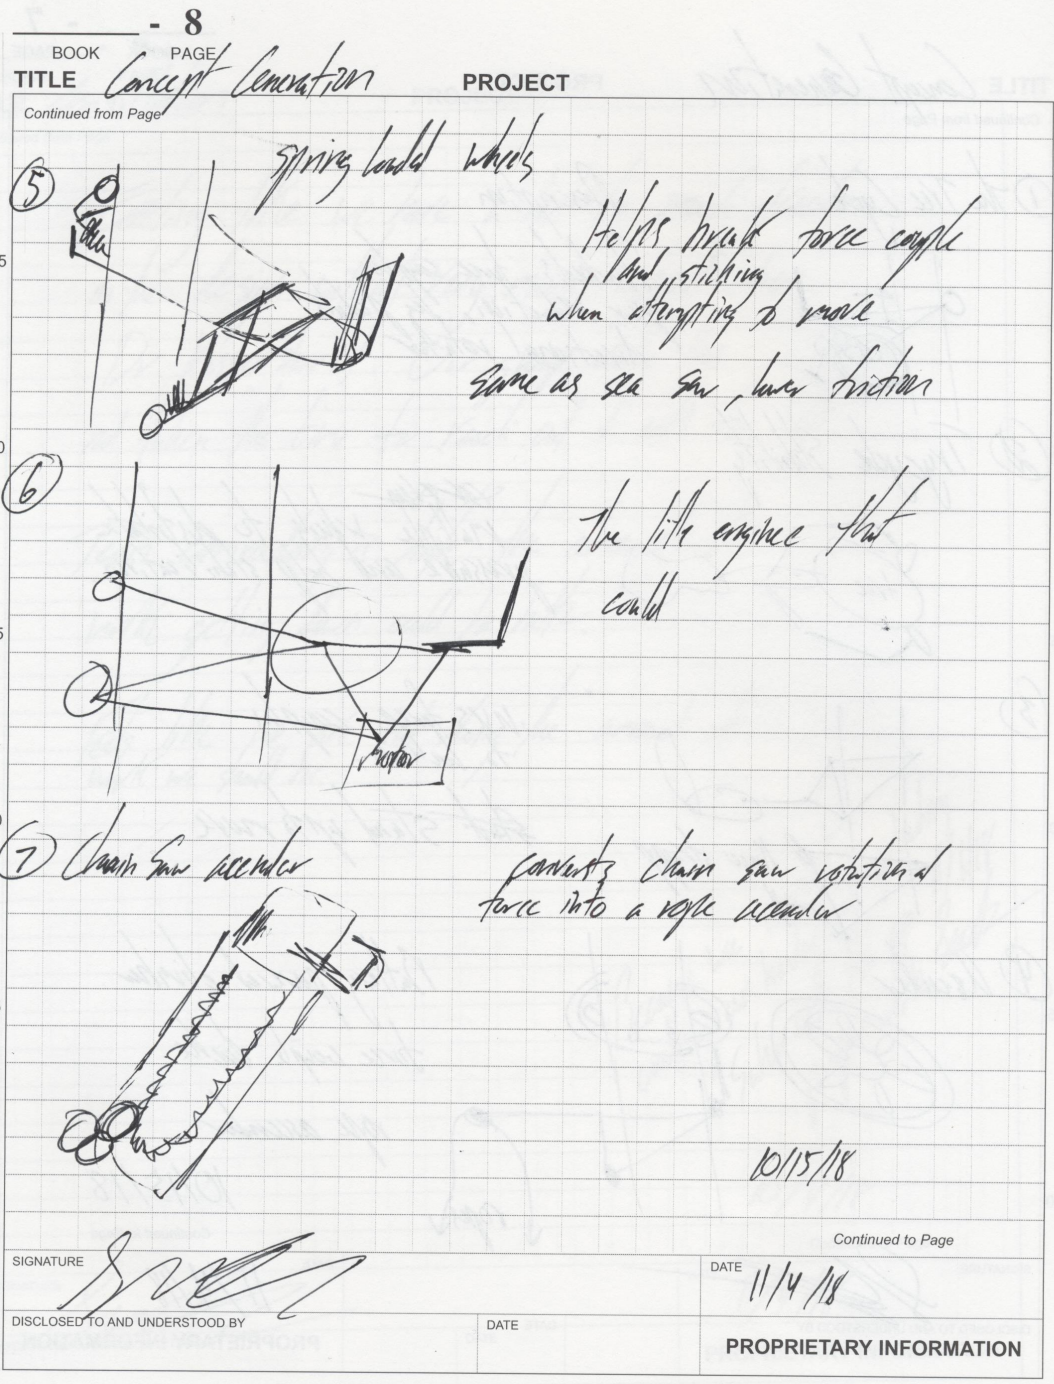 - 8
BOOK PAGE
TITLE Concept Generation PROJECT
Continued from Page
5 spring loaded wheels
Helps break force couple
and stiching
when attempting to move
same as sea saw, lower friction
6
The little engine that
could
motor
7 Chain Saw acender
converts chain saw rotational
force into a rope acender
10/15/18
Continued to Page
SIGNATURE
DATE 11/4/18
DISCLOSED TO AND UNDERSTOOD BY
DATE
PROPRIETARY INFORMATION